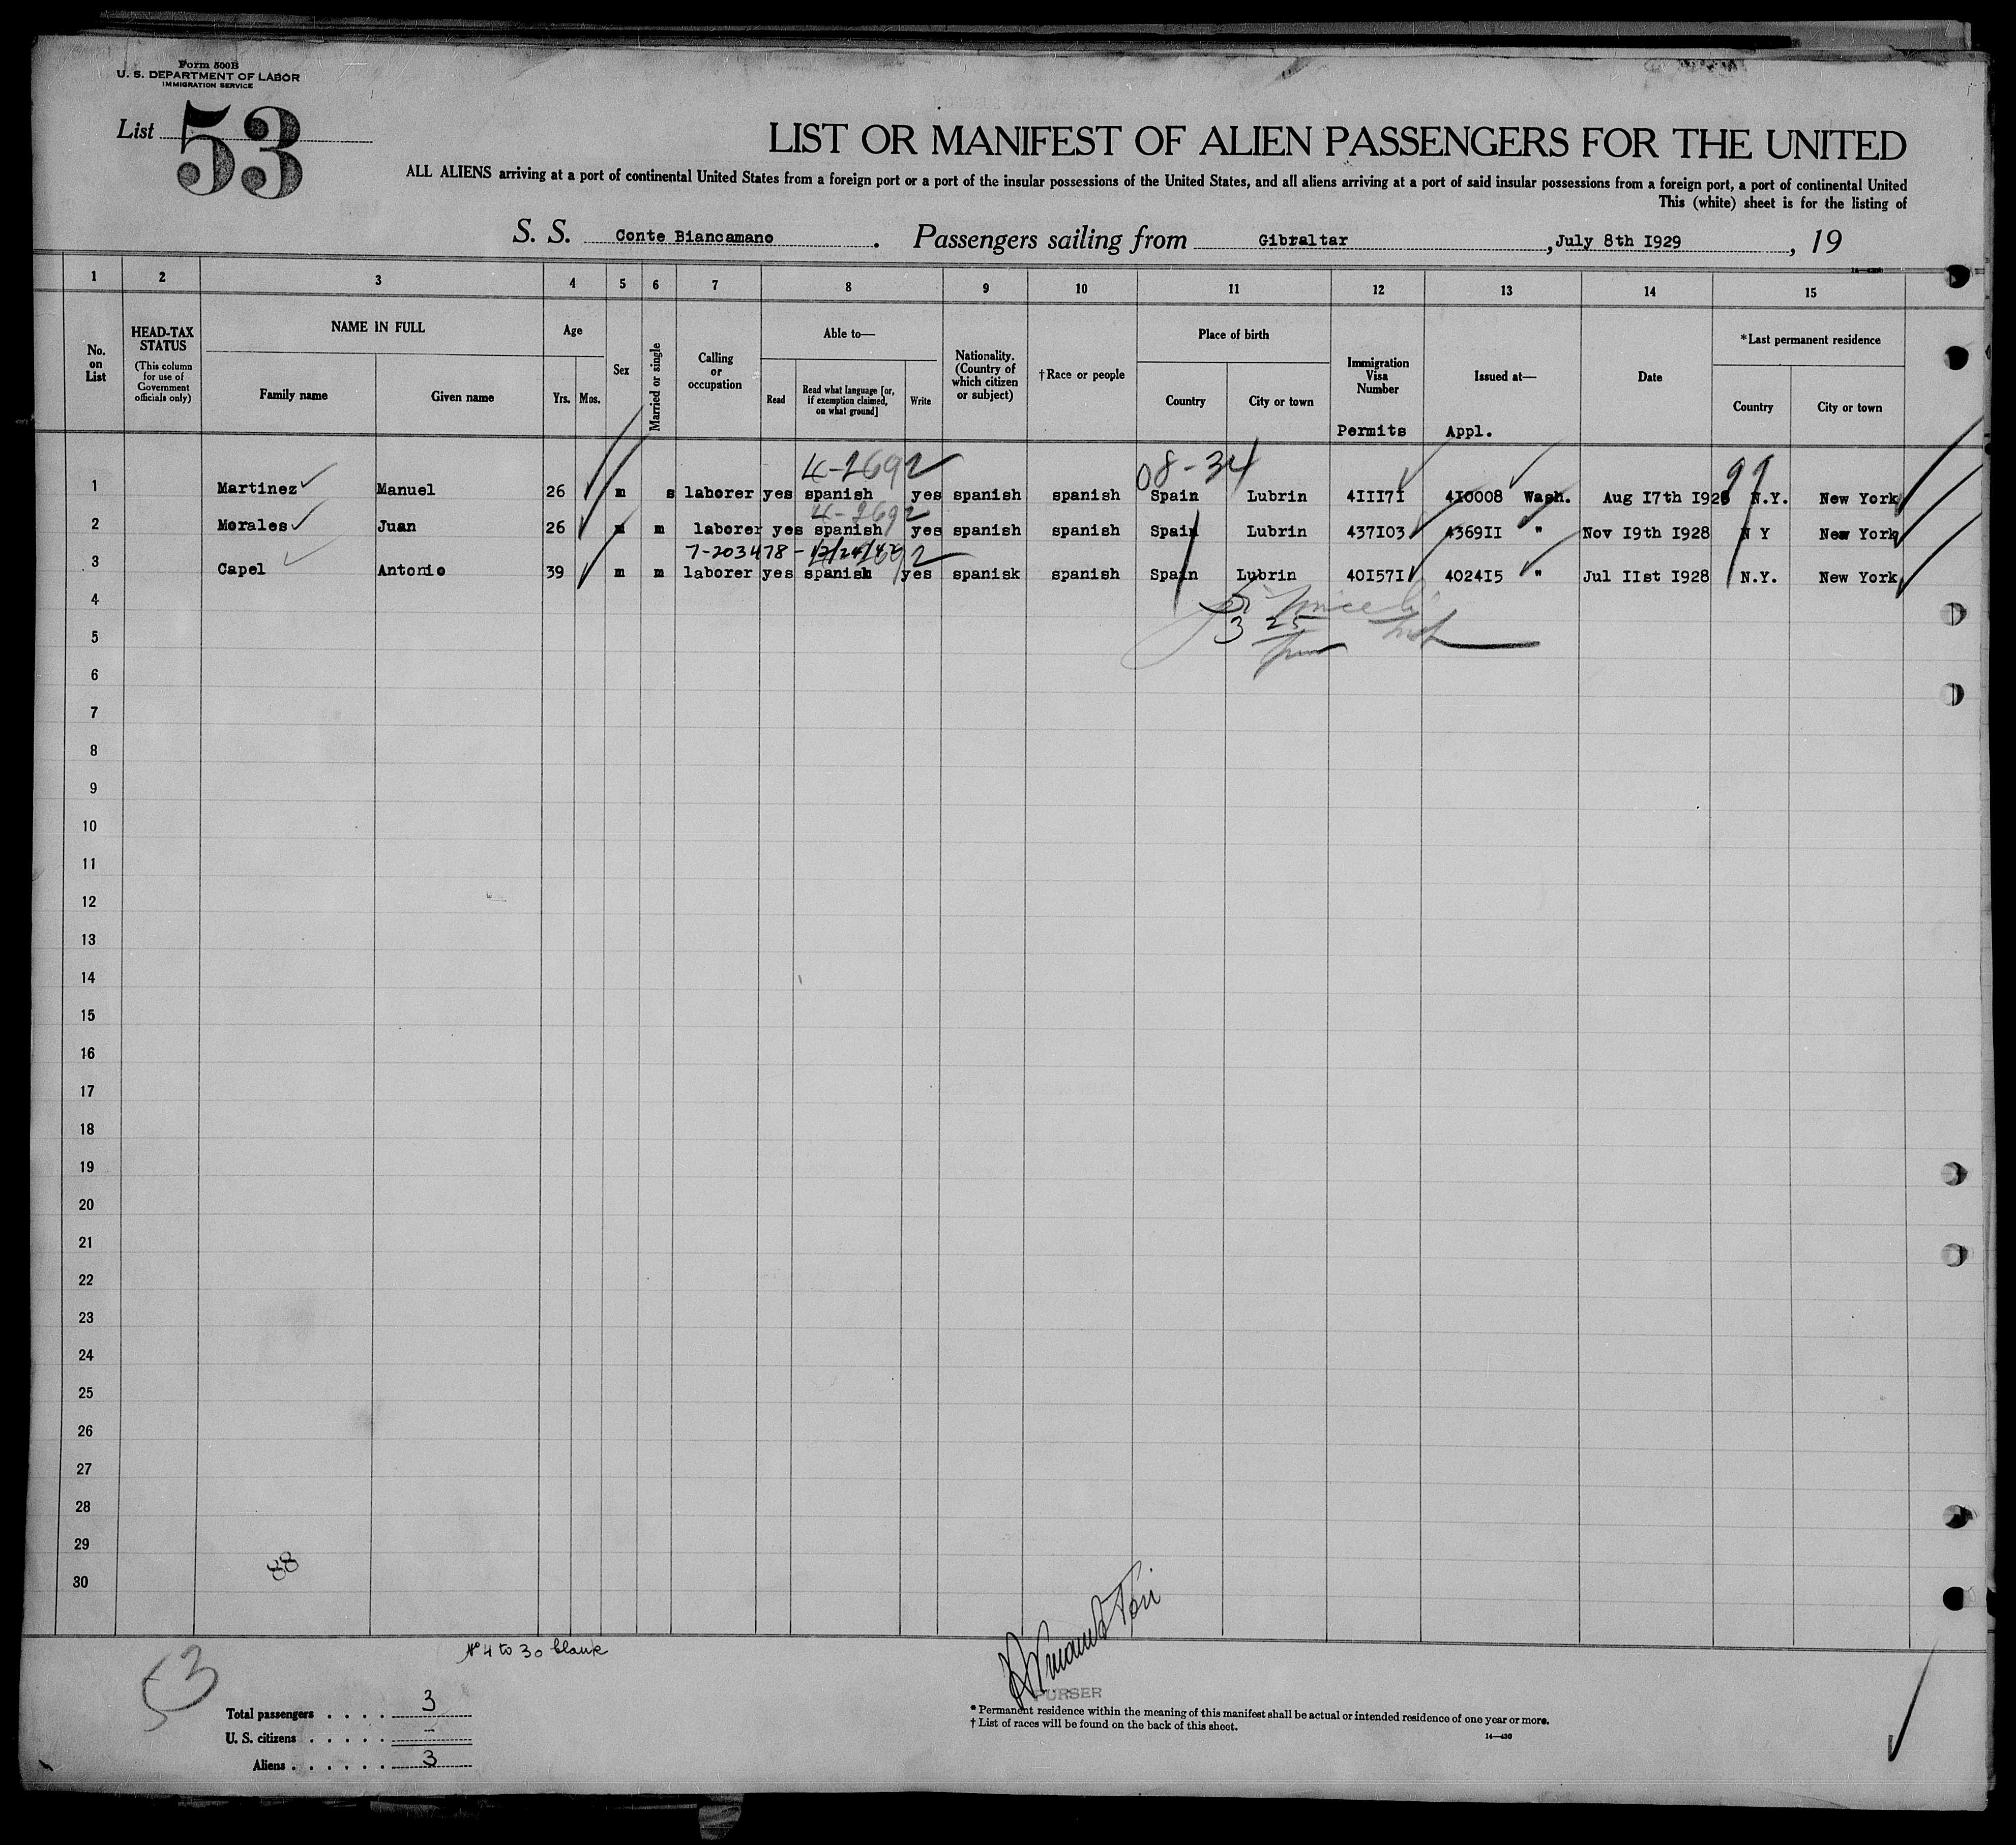 Form 500B
U. S. DEPARTMENT OF LABOR
IMMIGRATION SERVICE
List 53
LIST OR MANIFEST OF ALIEN PASSENGERS FOR THE UNITED
ALL ALIENS arriving at a port of continental United States from a foreign port or a port of the insular possessions of the United States, and all aliens arriving at a port of said insular possessions from a foreign port, a port of continental United
This (white) sheet is for the listing of
S. S. Conte Biancamano. Passengers sailing from Gibraltar, July 8th I929, 19
14—430
1 2 3 4 5 6 7 8 9 10 11 12 13 14 15
No. on List
HEAD-TAX STATUS
(This column for use of Government officials only)
NAME IN FULL
Family name Given name
Age
Yrs. Mos.
Sex
Married or single
Calling or occupation
Able to—
Read
Read what language [or, if exemption claimed, on what ground]
Write
Nationality. (Country of which citizen or subject)
†Race or people
Place of birth
Country City or town
Immigration Visa Number
Permits
Issued at—
Appl.
Date
*Last permanent residence
Country City or town
4-2692 08-34 99
1 Martinez Manuel 26 m s laborer yes spanish yes spanish spanish Spain Lubrin 4III7I 4I0008 Wash. Aug I7th I928 N.Y. New York
4-2692
2 Morales Juan 26 m m laborer yes spanish yes spanish spanish Spain Lubrin 437I03 4369II " Nov I9th I928 N Y New York
7-203478-12/24/42
3 Capel Antonio 39 m m laborer yes spanish yes spanisk spanish Spain Lubrin 40I57I 4024I5 " Jul IIst I928 N.Y. New York
4
5
3 25
6
7
8
9
10
11
12
13
14
15
16
17
18
19
20
21
22
23
24
25
26
27
28
29
30
88
Nº 4 to 30 blank
53
PURSER
Total passengers . . . . 3
U. S. citizens . . . . . —
Aliens . . . . . . 3
* Permanent residence within the meaning of this manifest shall be actual or intended residence of one year or more.
† List of races will be found on the back of this sheet.
14—430